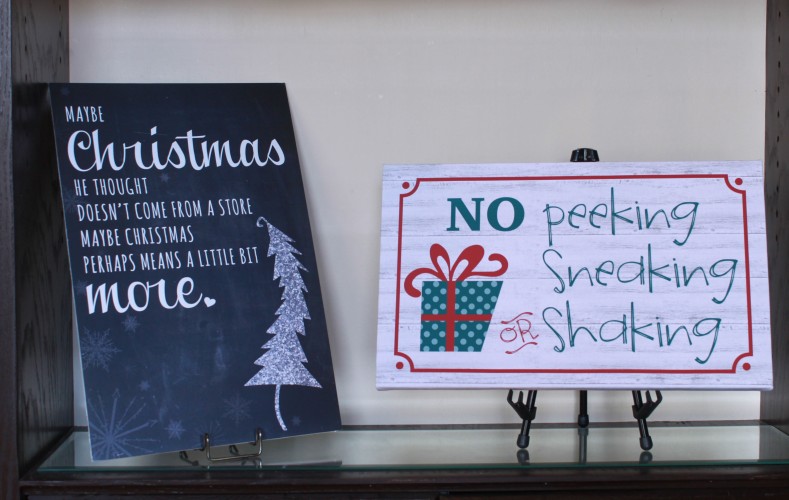 MAYBE
Christmas
HE THOUGHT
DOESN'T COME FROM A STORE
MAYBE CHRISTMAS
PERHAPS MEANS A LITTLE BIT
more.
NO peeking
Sneaking
OR Shaking